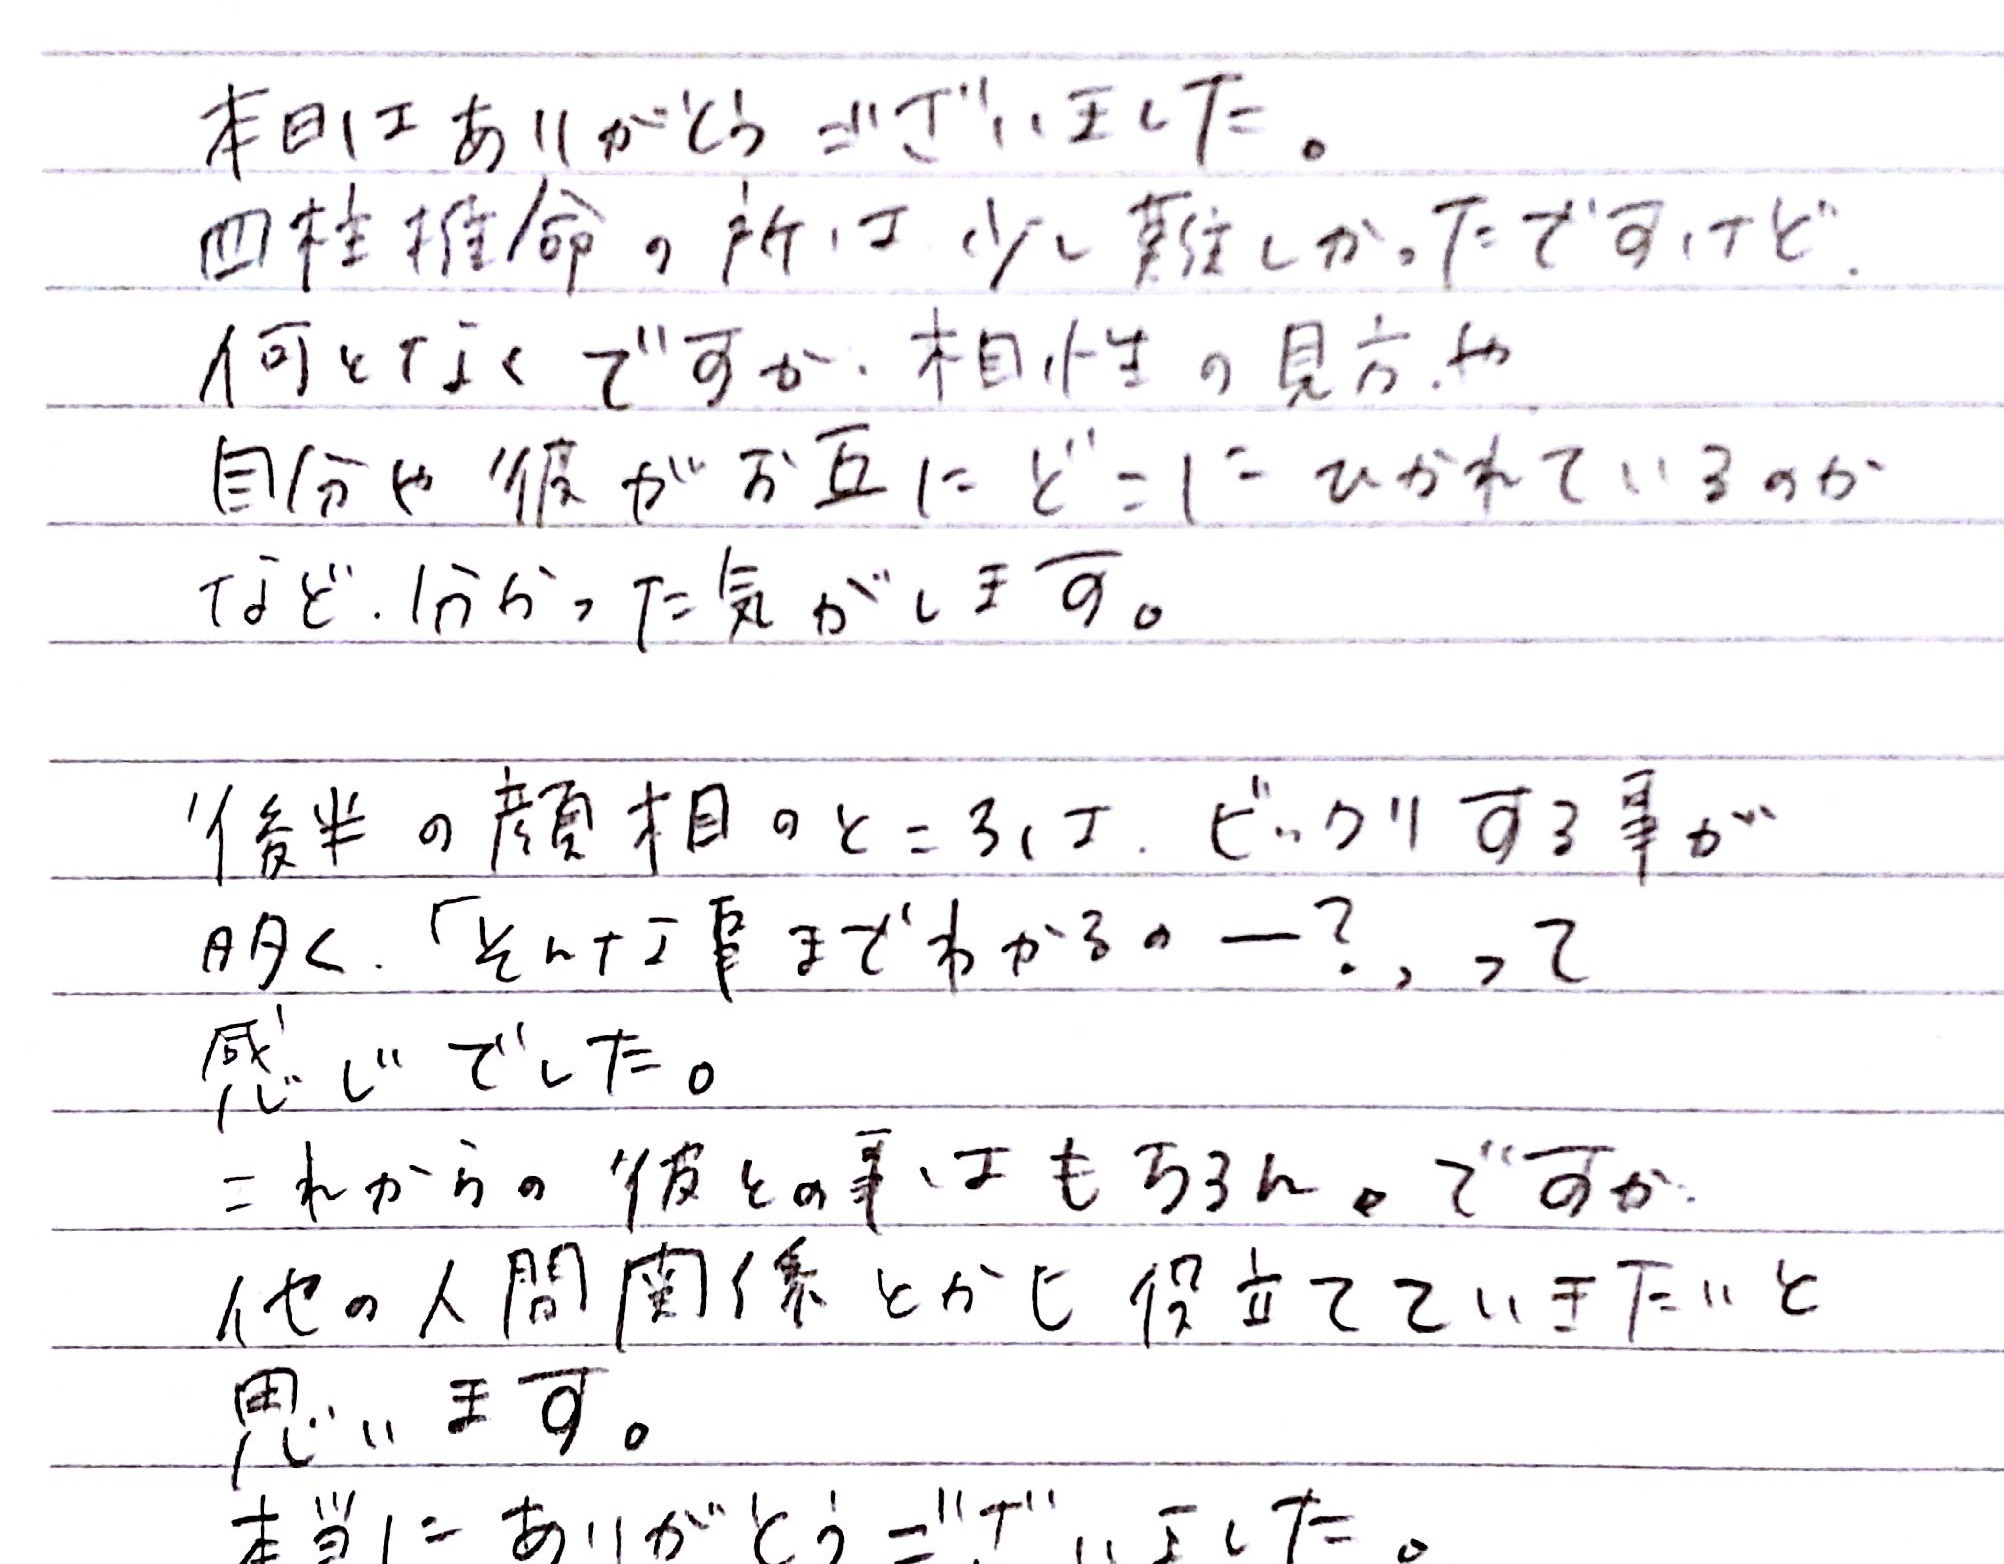 本日はありがとうございました。
四柱推命の所は少し難しかったですけど、
何となくですが、相性の見方や
自分や彼がお互にどこにひかれているのか
など、分かった気がします。
後半の顔相のところは、ビックリする事が
多く、「そんな事までわかるのー?」って
感じでした。
これからの彼との事はもちろん。ですが、
他の人間関係とかも役立てていきたいと
思います。
本当にありがとうございました。